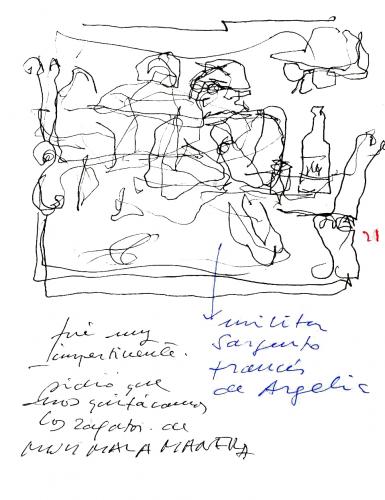 21
fué muy
impertinente.
pidió que
nos quitáramos
los zapatos. de
MUY MALA MANERA
militar
Sargento
francés
de Argelia